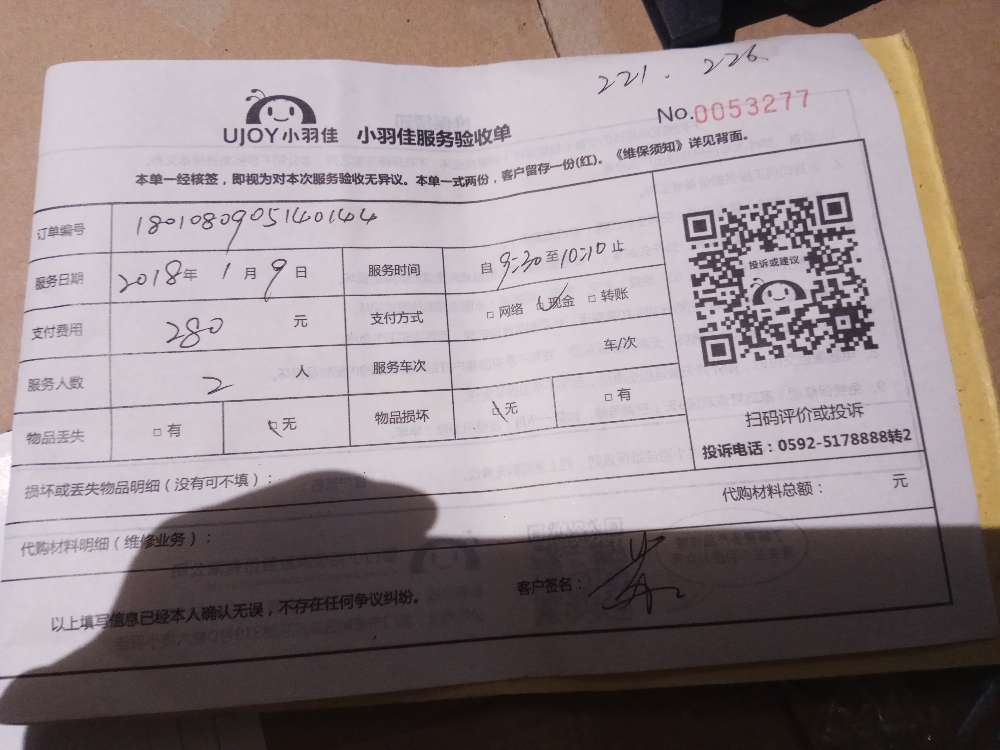 221. 226
No.0053277
UJOY小羽佳 小羽佳服务验收单
本单一经核签，即视为对本次服务验收无异议。本单一式两份，客户留存一份(红)。《维保须知》详见背面。
订单编号 1801080905140144
服务日期 2018年 1月 9日 服务时间 自 9:30 至 10:10 止
支付费用 280 元 支付方式 □网络 □现金 □转账
服务人数 2 人 服务车次 车/次
物品丢失 □有 □无 物品损坏 □无 □有
投诉或建议
扫码评价或投诉
投诉电话：0592-5178888转2
损坏或丢失物品明细（没有可不填）：
代购材料明细（维修业务）： 代购材料总额： 元
以上填写信息已经本人确认无误，不存在任何争议纠纷。 客户签名：